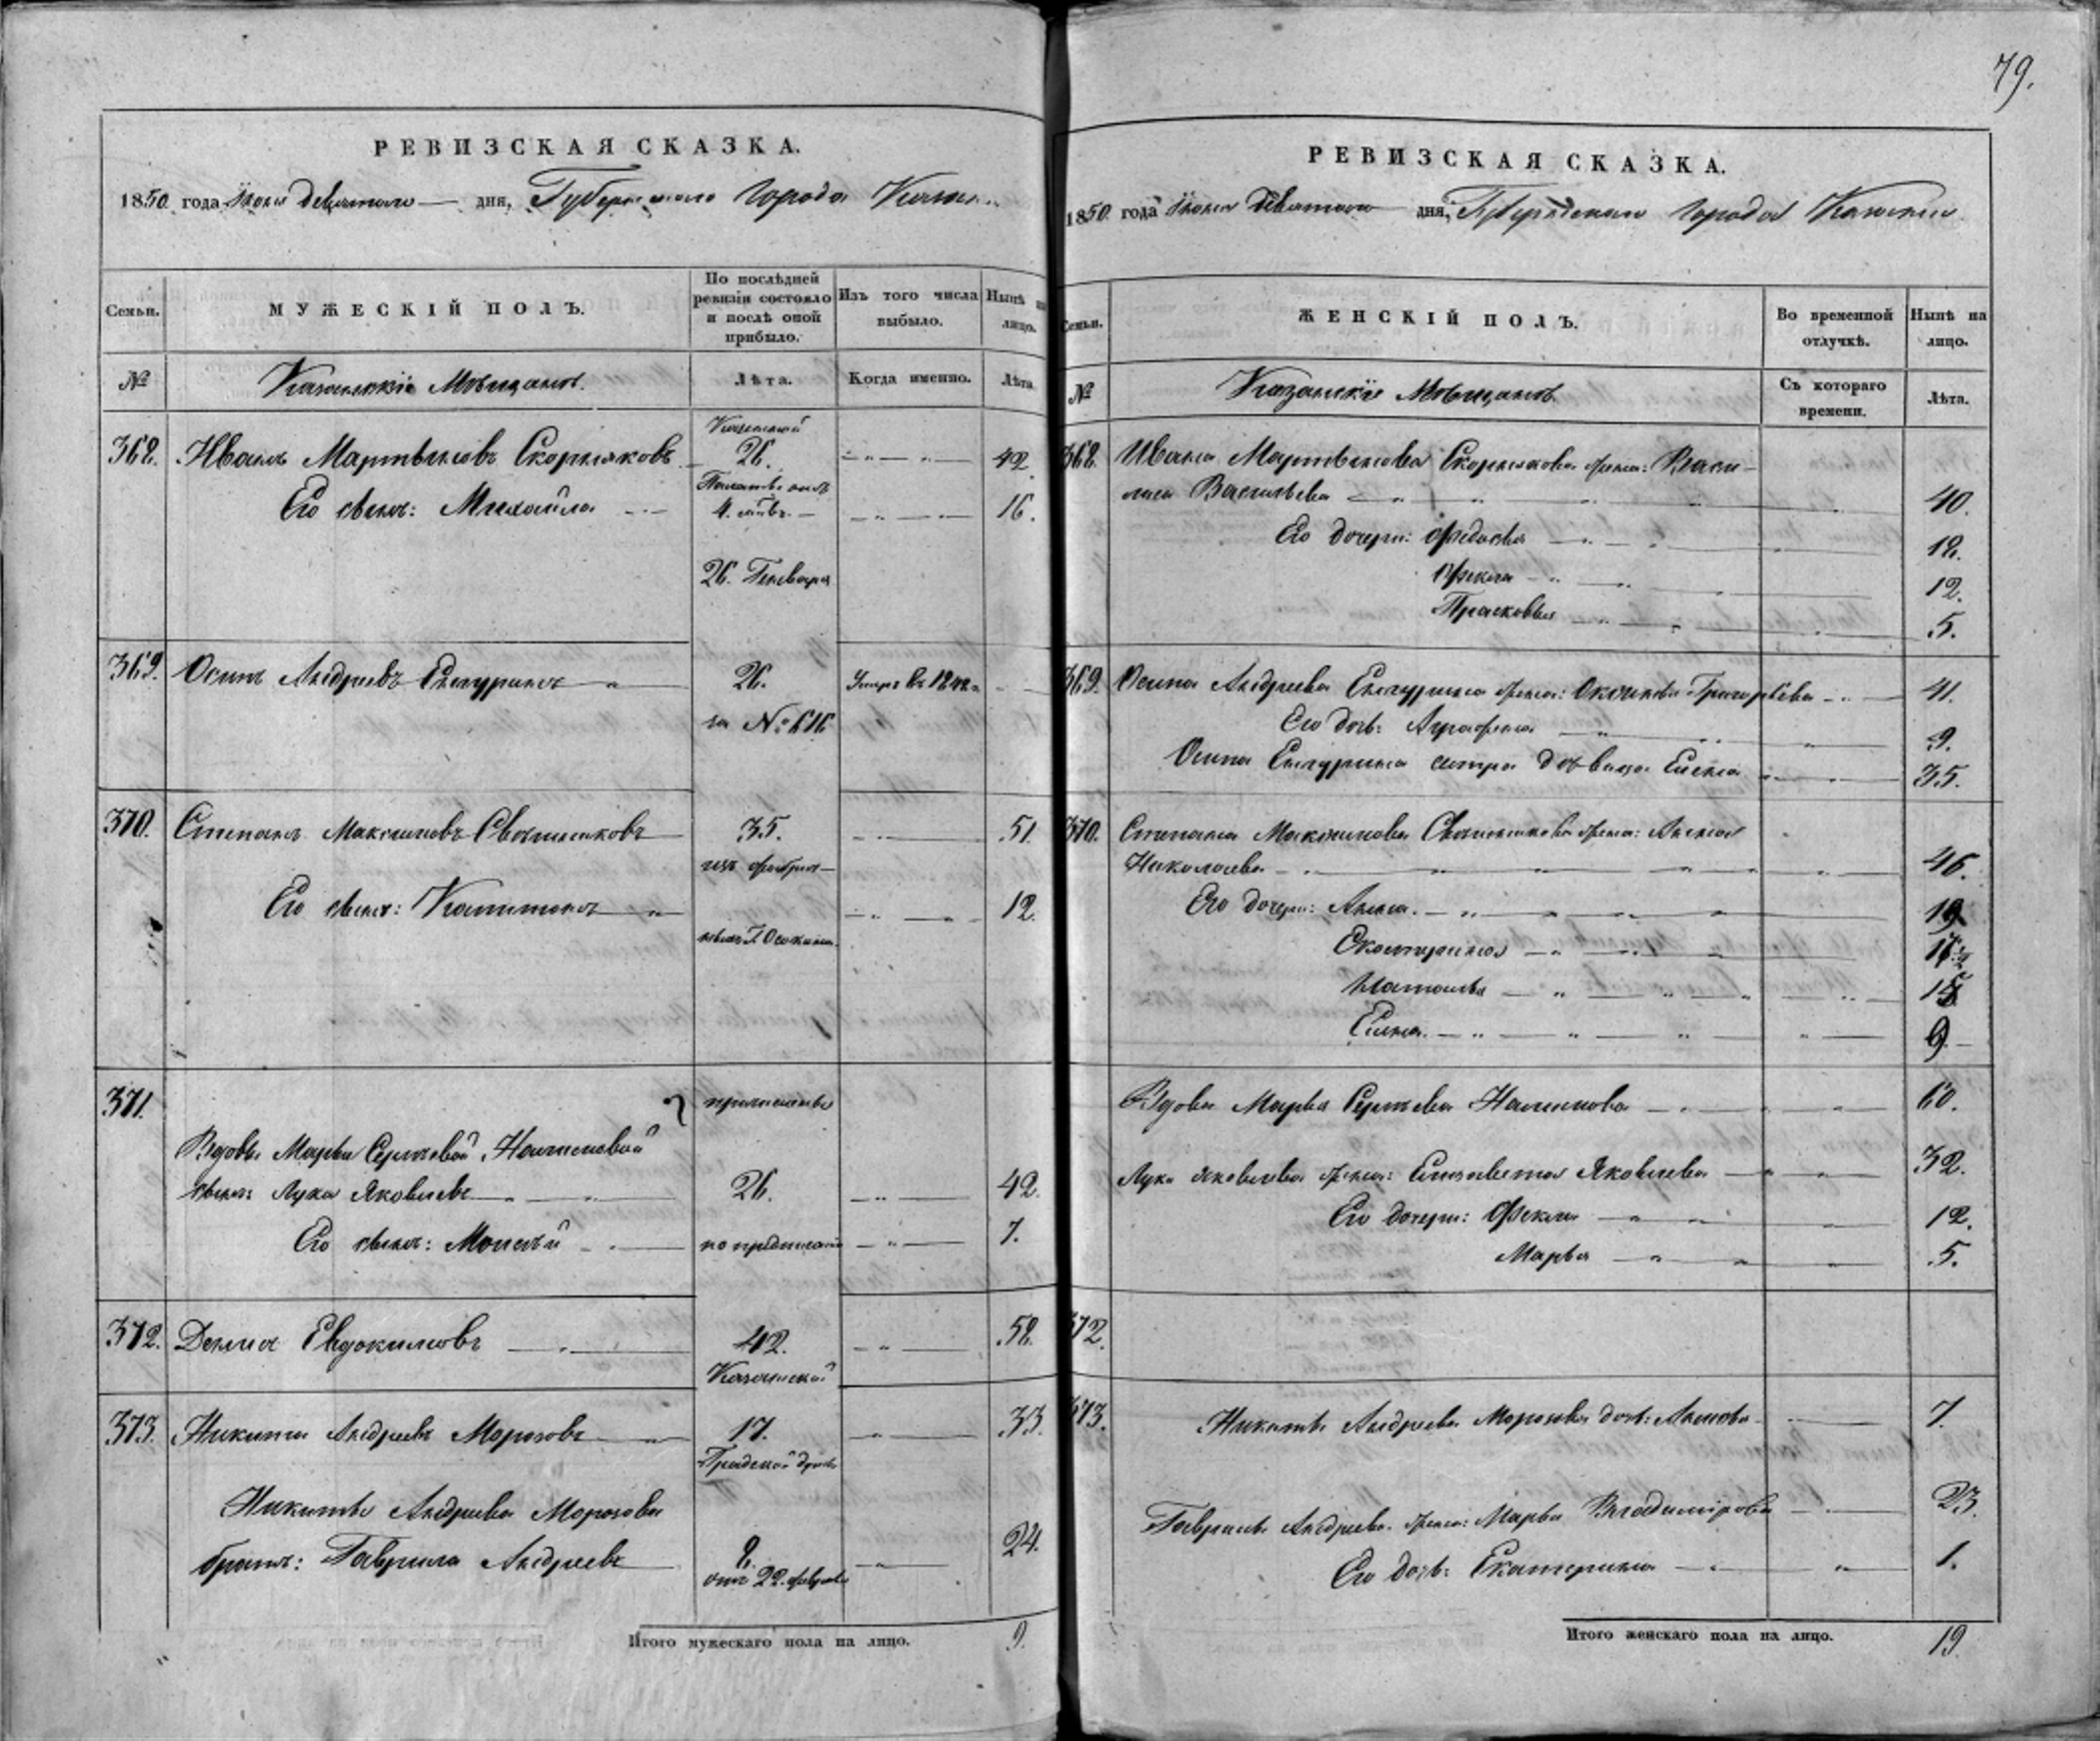 79.
РЕВИЗСКАЯ СКАЗКА.
1850 года Июня девятаго дня, Губернскаго города Казани
Семьи.
МУЖЕСКІЙ ПОЛЪ.
По послѣдней ревизіи состояло и послѣ оной прибыло.
Изъ того числа выбыло.
Нынѣ на лицо.
№
Казанскіе Мѣщане.
Лѣта.
Когда именно.
Лѣта
Казанской
368. Иванъ Мартыновъ Скорняковъ 26. 42
Палаты
Его сынъ: Михайла 16.
26. Генваря
369. Осипъ Андреевъ Енгуринъ 26. Умеръ въ
за № 616
370. Степанъ Максимовъ Свѣшниковъ 35. 51.
изъ фабрич
Его сынъ: Капитонъ 12.
Осокина
371. причислены
Вдовы Марьи Сергѣевой Налимовой
сынъ Лука Яковлевъ 26. 42.
Его сынъ: Моисей по предписанію 7.
372. Демид Евдокимовъ 42. 58.
Казанской
373. Никита Андреевъ Морозовъ 17. 33.
Градской думы
Никиты Андреева Морозова
братъ: Гаврила Андреевъ 8. 24.
отъ 22. февраля
Итого мужескаго пола на лицо. 9.
РЕВИЗСКАЯ СКАЗКА.
1850 года Июня девятаго дня, Губернскаго города Казани
Семьи.
ЖЕНСКІЙ ПОЛЪ.
Во временной отлучкѣ.
Нынѣ на лицо.
№
Казанскіе Мѣщане
Съ котораго времени.
Лѣта.
368. Ивана Мартынова Скорнякова жена: Васи-
лиса Васильева 40.
Его дочери: Федосья 18.
Фекла 12.
Прасковья 5.
369. Осипа Андреева Енгурина жена: Аксинья Григорьева 41.
Его дочь: Аграфена 9.
Осипа Енгурина сестра дѣвица Елена 35.
370. Степана Максимова Свѣшникова жена: Анна
Николаева 46.
Его дочери: Анна 19
Екатерина 17
Наталья 15
Елена 9
Вдова Марья Сергѣева Налимова 60.
Луки Яковлева жена: Елизавета Яковлева 32.
Его дочери: Фекла 12.
Марья 5.
372.
373. Никиты Андреева Морозова дочь: 7.
Гаврилы Андреева жена: Марья Владимірова 23.
Его дочь: Екатерина 1.
Итого женскаго пола на лицо. 19